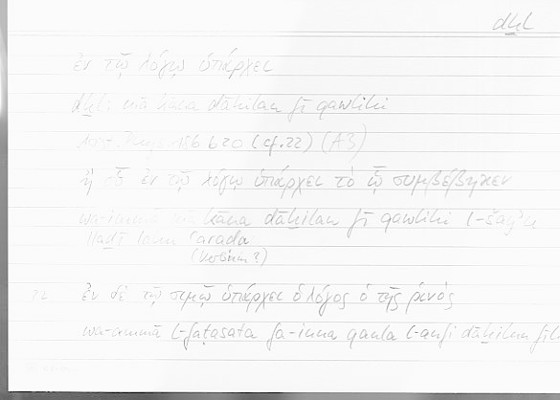 dḫl
ἐν τῷ λόγῳ ὑπάρχει
dḫl: mā kāna dāḫilan fī qawlihi
Arist. Phys. 186 b 20 (cf. 22) (A3)
ἢ ᾧ ἐν τῷ λόγῳ ὑπάρχει τὸ ᾧ συμβέβηκεν
wa-immā mā kāna dāḫilan fī qawlihi l-šayʾu
lladī lahu ʿaraḍa
22 ἐν δὲ τῷ σιμῷ ὑπάρχει ὁ λόγος ὁ τῆς ῥινός
wa-ammā l-faṭasata fa-inna qaula l-anfi dāḫilun